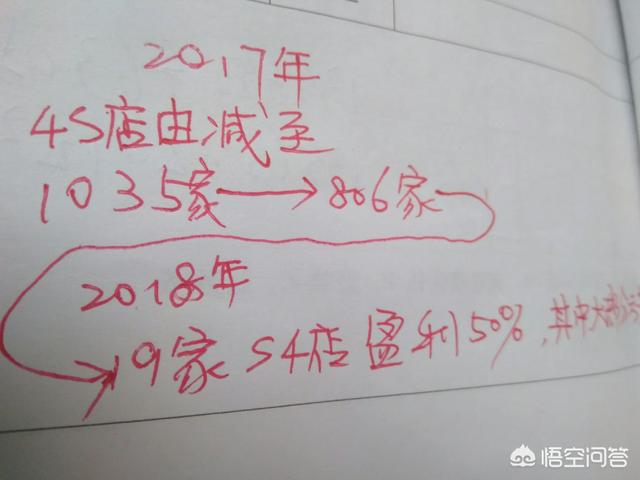 2017年
4S店由减至
1035家→806家
2018年
19家S4店盈利50%,其中大部分
悟空问答